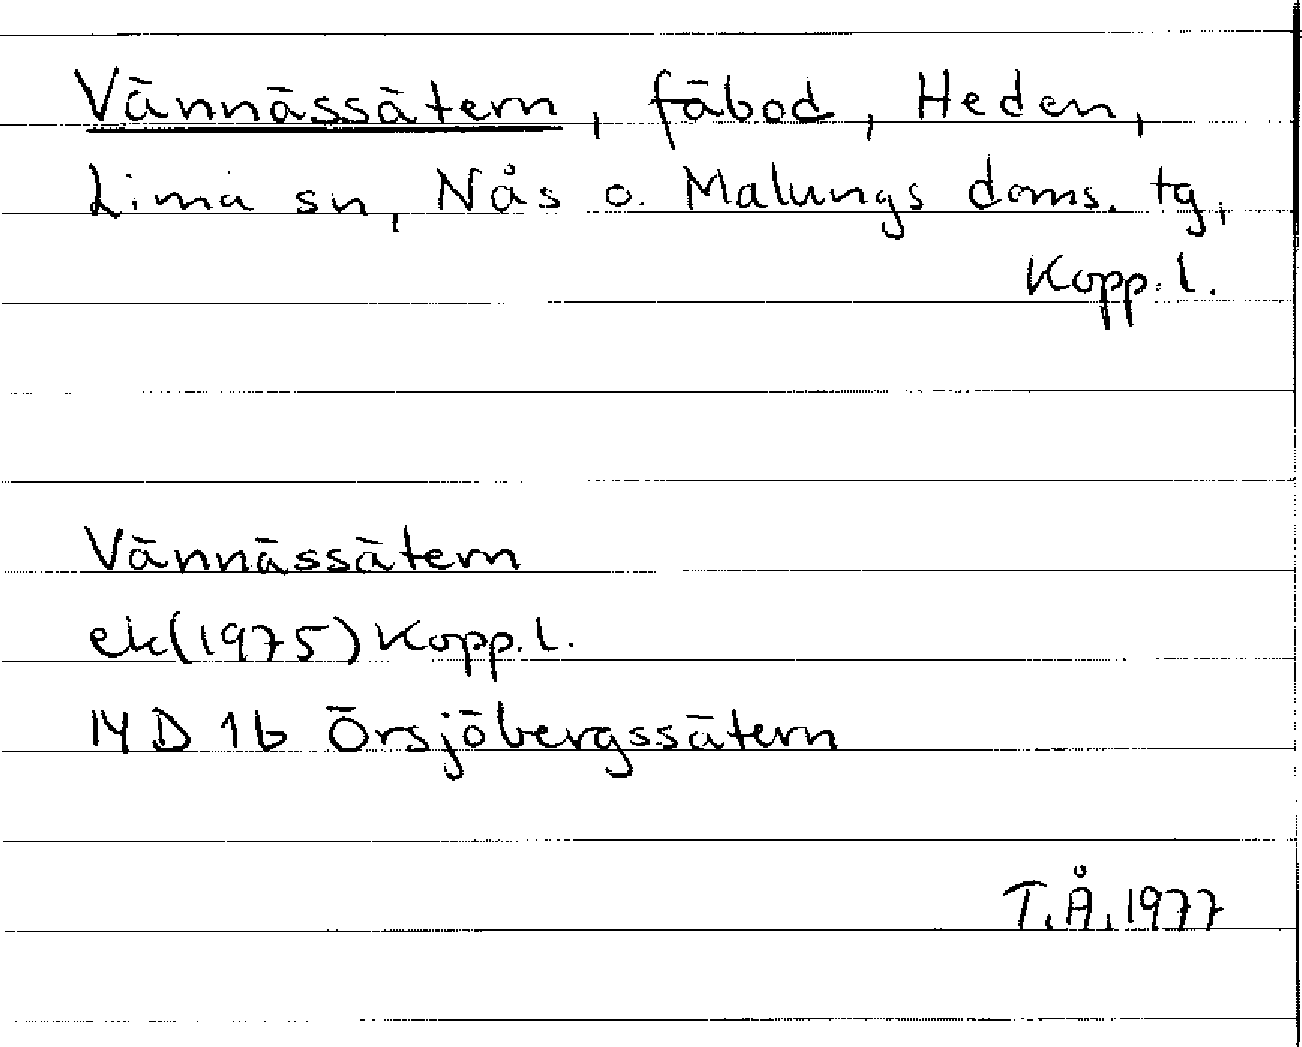 Vännässätern, fäbod, Heden,
Lima sn, Nås o. Malungs doms. tg,
Kopp. l.
Vännässätern
ek(1975) Kopp. l.
14 D 1b Örsjöbergssätern
T.Å. 1977